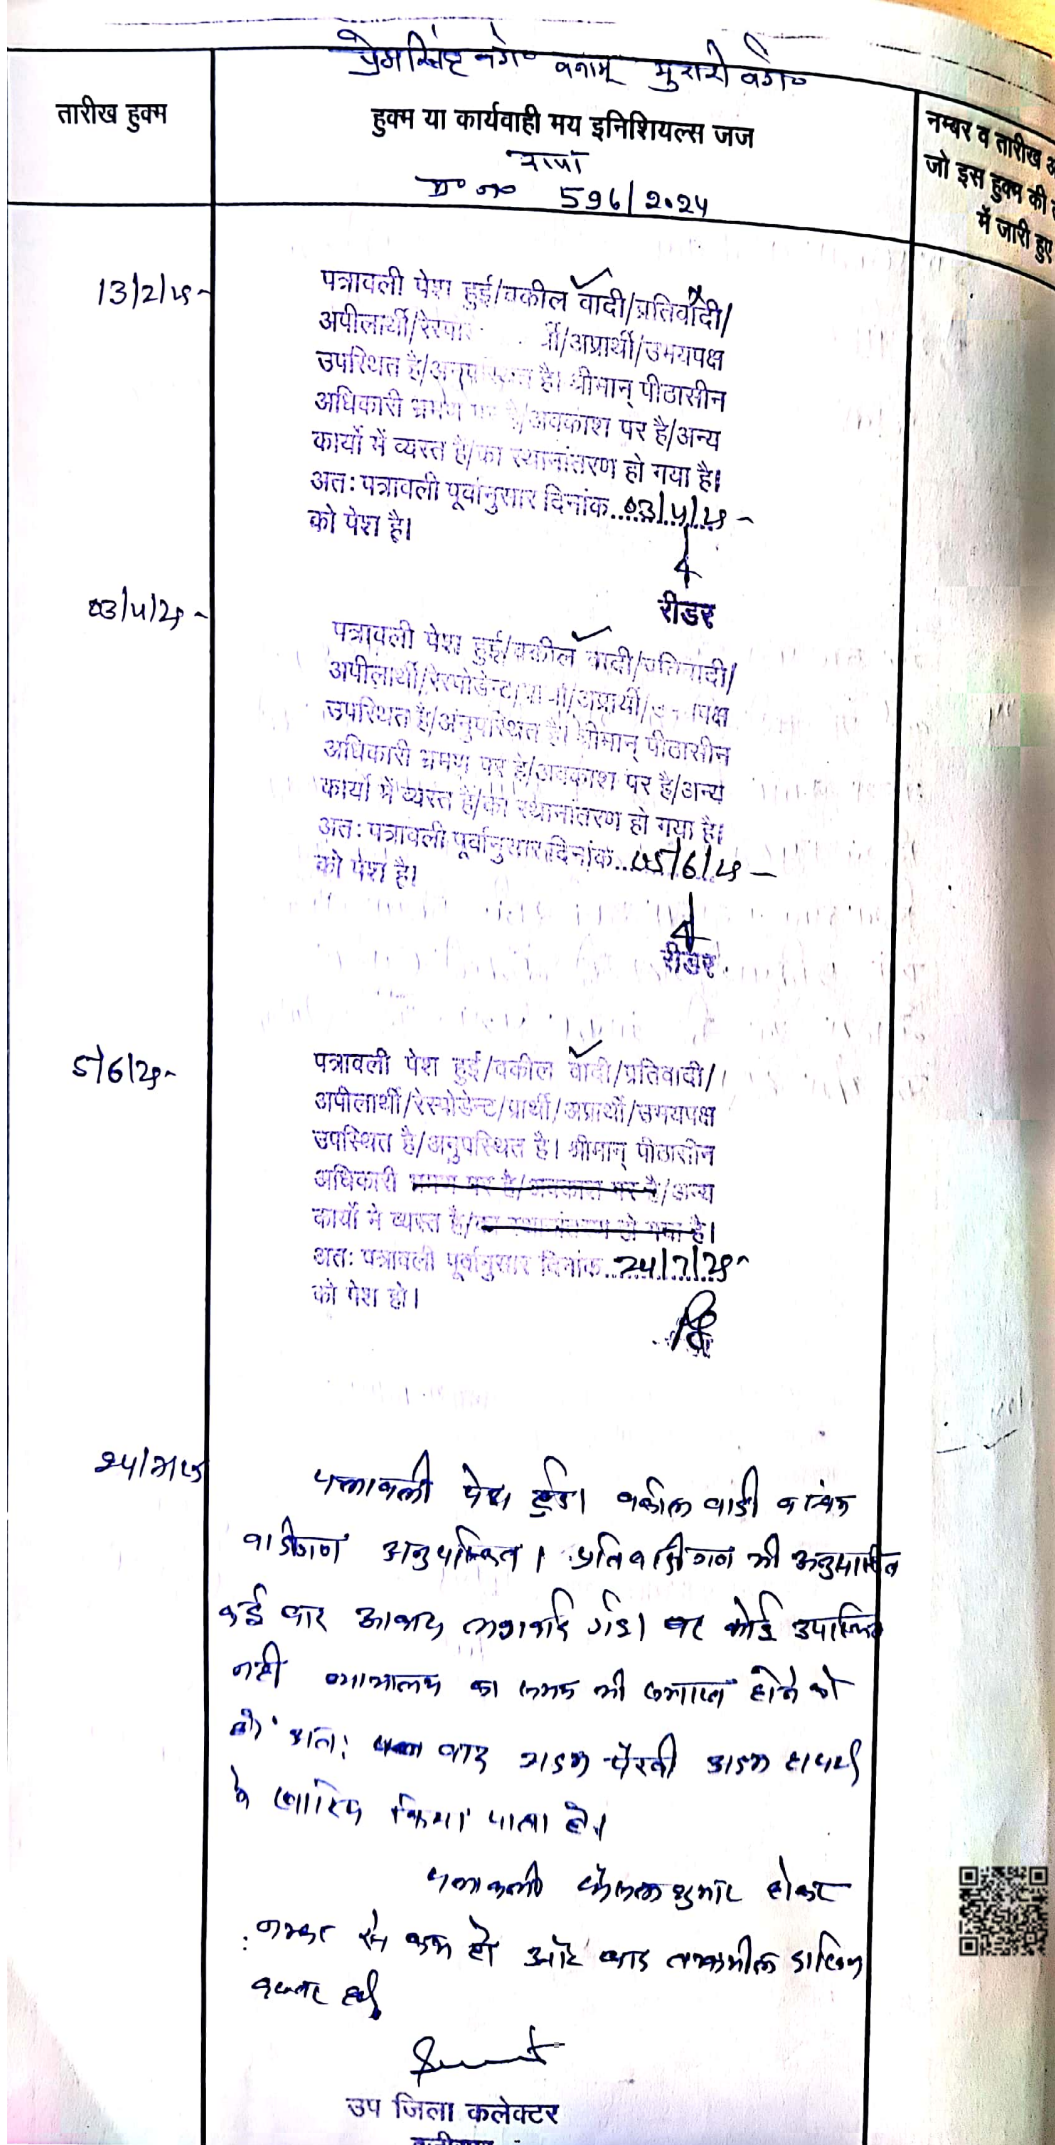 प्रेमसिंह वगै० बनाम् मुरारी वगै०
तारीख हुक्म
हुक्म या कार्यवाही मय इनिशियल्स जज
नम्बर व तारीख
जो इस हुक्म की
में जारी हुए
596/2024
13/2/25
पत्रावली पेश हुई/वकील वादी/प्रतिवादी/
अपीलार्थी/रेस्पो र्थी/अप्रार्थी/उभयपक्ष
उपस्थित है/अनुपस्थित है। श्रीमान् पीठासीन
अधिकारी भ्रमण पर है/अवकाश पर है/अन्य
कार्यो में व्यस्त है/का स्थानांतरण हो गया है।
अतः पत्रावली पूर्वानुसार दिनांक..03/4/25
को पेश है।
रीडर
03/4/25
पत्रावली पेश हुई/वकील वादी/प्रतिवादी/
अपीलार्थी/रेस्पोडेन्ट/प्रार्थी/अप्रार्थी/उभयपक्ष
उपस्थित है/अनुपस्थित है। श्रीमान् पीठासीन
अधिकारी भ्रमण पर है/अवकाश पर है/अन्य
कार्यो में व्यस्त है/का स्थानांतरण हो गया है।
अतः पत्रावली पूर्वानुसार दिनांक..05/6/25
को पेश है।
रीडर
5/6/25
पत्रावली पेश हुई/वकील वादी/प्रतिवादी/
अपीलार्थी/रेस्पोडेन्ट/प्रार्थी/अप्रार्थी/उभयपक्ष
उपस्थित है/अनुपस्थित है। श्रीमान् पीठासीन
अधिकारी भ्रमण पर है/अवकाश पर है/अन्य
कार्यो मे व्यस्त है/का स्थानांतरण हो गया है।
अतः पत्रावली पूर्वानुसार दिनांक..24/7/25
को पेश हो।
24/7/25
पत्रावली पेश हुई। वकील वादी व
वादीगण अनुपस्थित। प्रतिवादीगण भी अनुपस्थित
कई बार आवाज लगवाई गई। पर कोई उपस्थित
नही न्यायालय का समय भी समाप्त होने को
है। अतः वाद अदम पैरवी अदम हाजरी
मे खारिज किया जाता है।
पत्रावली फैसल शुमार होकर
नम्बर से कम हो और बाद तकमील दाखिल
दफ्तर हो।
उप जिला कलेक्टर